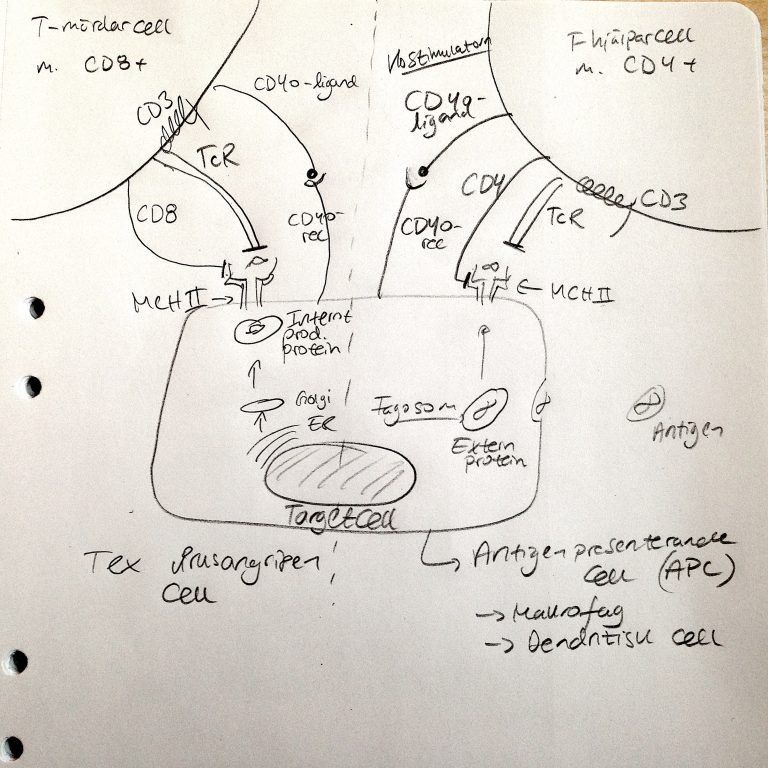 T-mördarcell
m. CD8+
CD3
TcR
CD8
CD40-ligand
CD40-
rec
MCH II →
Internt
prod.
protein
Golgi
ER
Targetcell
Tex Virusangripen
cell
Kostimulatorn
T-hjälparcell
m. CD4+
CD40-
ligand
CD4
TcR
CD3
CD40-
rec
← MCH II
Fagosom
Extern
protein
Antigen
Antigenpresenterande
cell (APC)
→ Makrofag
→ Dendritisk cell